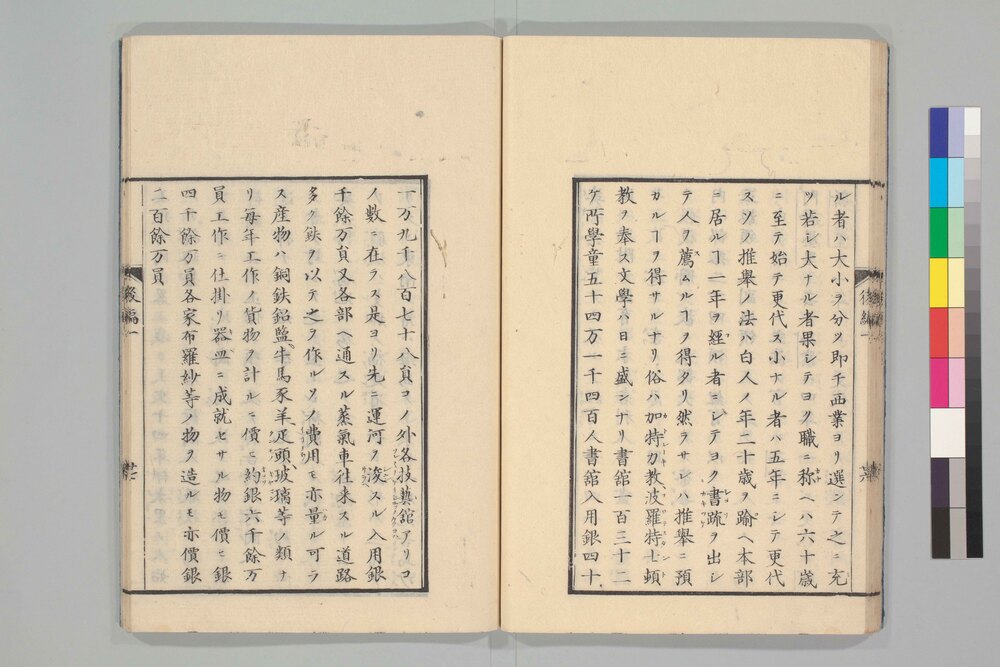 ル者ハ大小ヲ分ツ即チ西業ヨリ選ンテ之ニ充
ツ若シ大ナル者果シテヨク職ニ称ヘハ六十歳
ニ至テ始テ更代ス小ナル者ハ五年ニシテ更代
スソノ推舉ノ法ハ白人ノ年二十歳ヲ踰ヘ本部
ニ居ルヿ一年ヲ経ル者ニシテヨク書疏ヲ出シ
テ人ヲ薦ムルヿヲ得タリ然ラサレハ推舉ニ預
カルヿヲ得サルナリ俗ハ加特力教波羅特士頓
教ヲ奉ス文學ハ日ニ盛ンナリ書舘一百三十二
ケ所學童五十四万一千四百人書舘入用銀四十
一万九千八百七十八員コノ外各技藝舘アリコ
ノ數ニ在ラス是ヨリ先ニ運河ヲ浚スル入用銀
千餘万員又各部ヘ通スル蒸氣車往来スル道路
多ク鉄ヲ以テ之ヲ作ルソノ費用モ亦量ル可ラ
ス産物ハ銅鉄鉛鹽牛馬豕羊疋頭玻璃等ノ類ナ
リ毎年工作ノ貨物ヲ計ルニ價ヒ約銀六千餘万
員工作ニ仕掛リ器皿ニ成就セサル物モ價ヒ銀
四千餘万員各家布羅紗等ノ物ヲ造ルモ亦價銀
二百餘万員
後編一